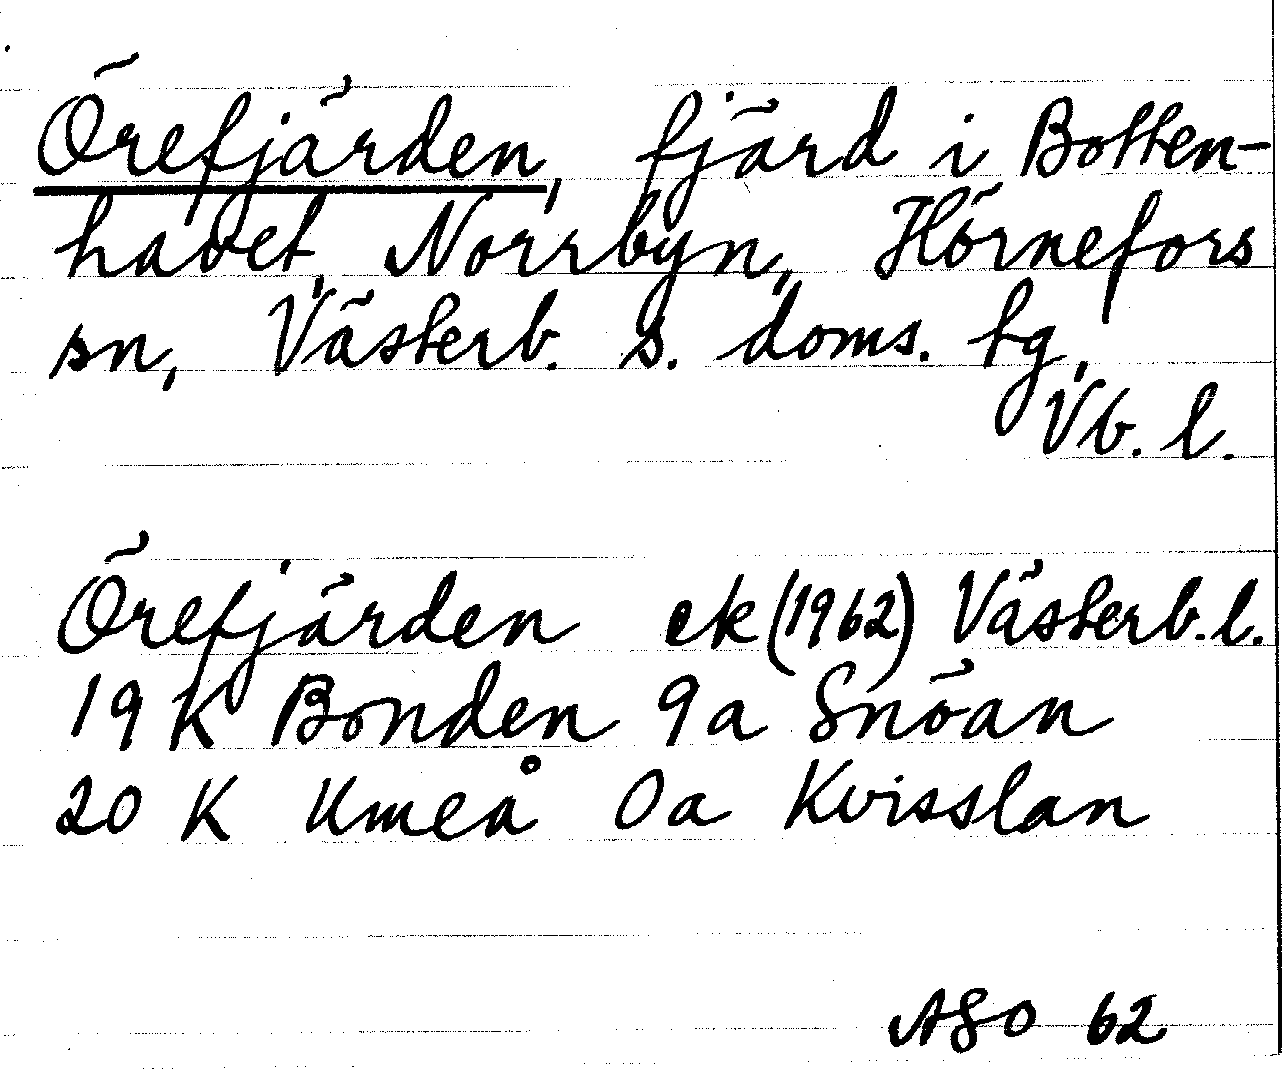 Örefjärden, fjärd i Botten-
havet, Norrbyn, Hörnefors
sn, Västerb. s. doms. tg,
Vb. l.
Örefjärden ek (1962) Västerb. l.
19 K Bonden 9a Snöan
20 K Umeå 0a Kvisslan
ASO 62